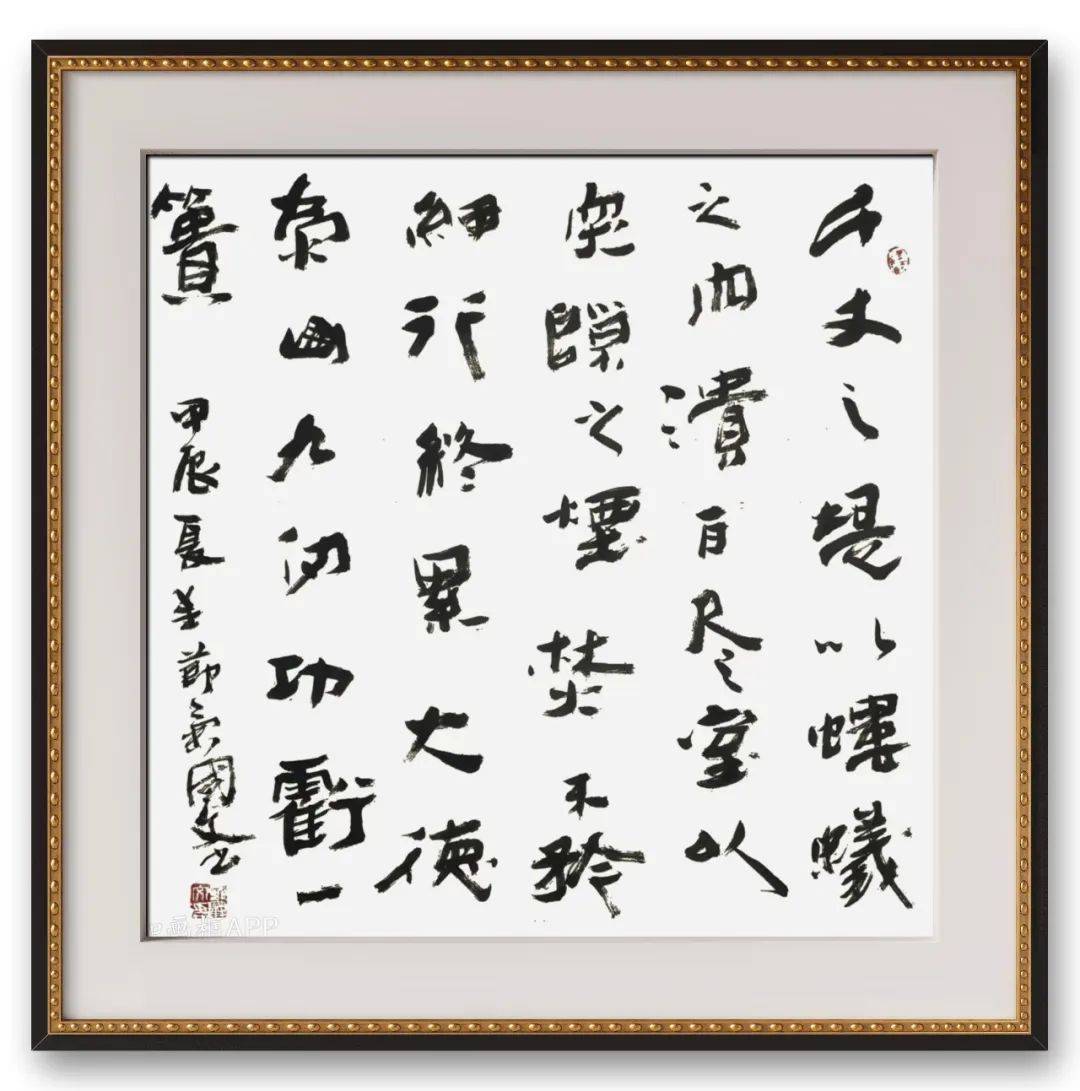 千丈之堤以螻蟻
之穴潰百尺之室以
突隙之煙焚不矜
細行終累大德
為山九仞功虧一
簣
甲辰夏至節氣國文书
画框APP